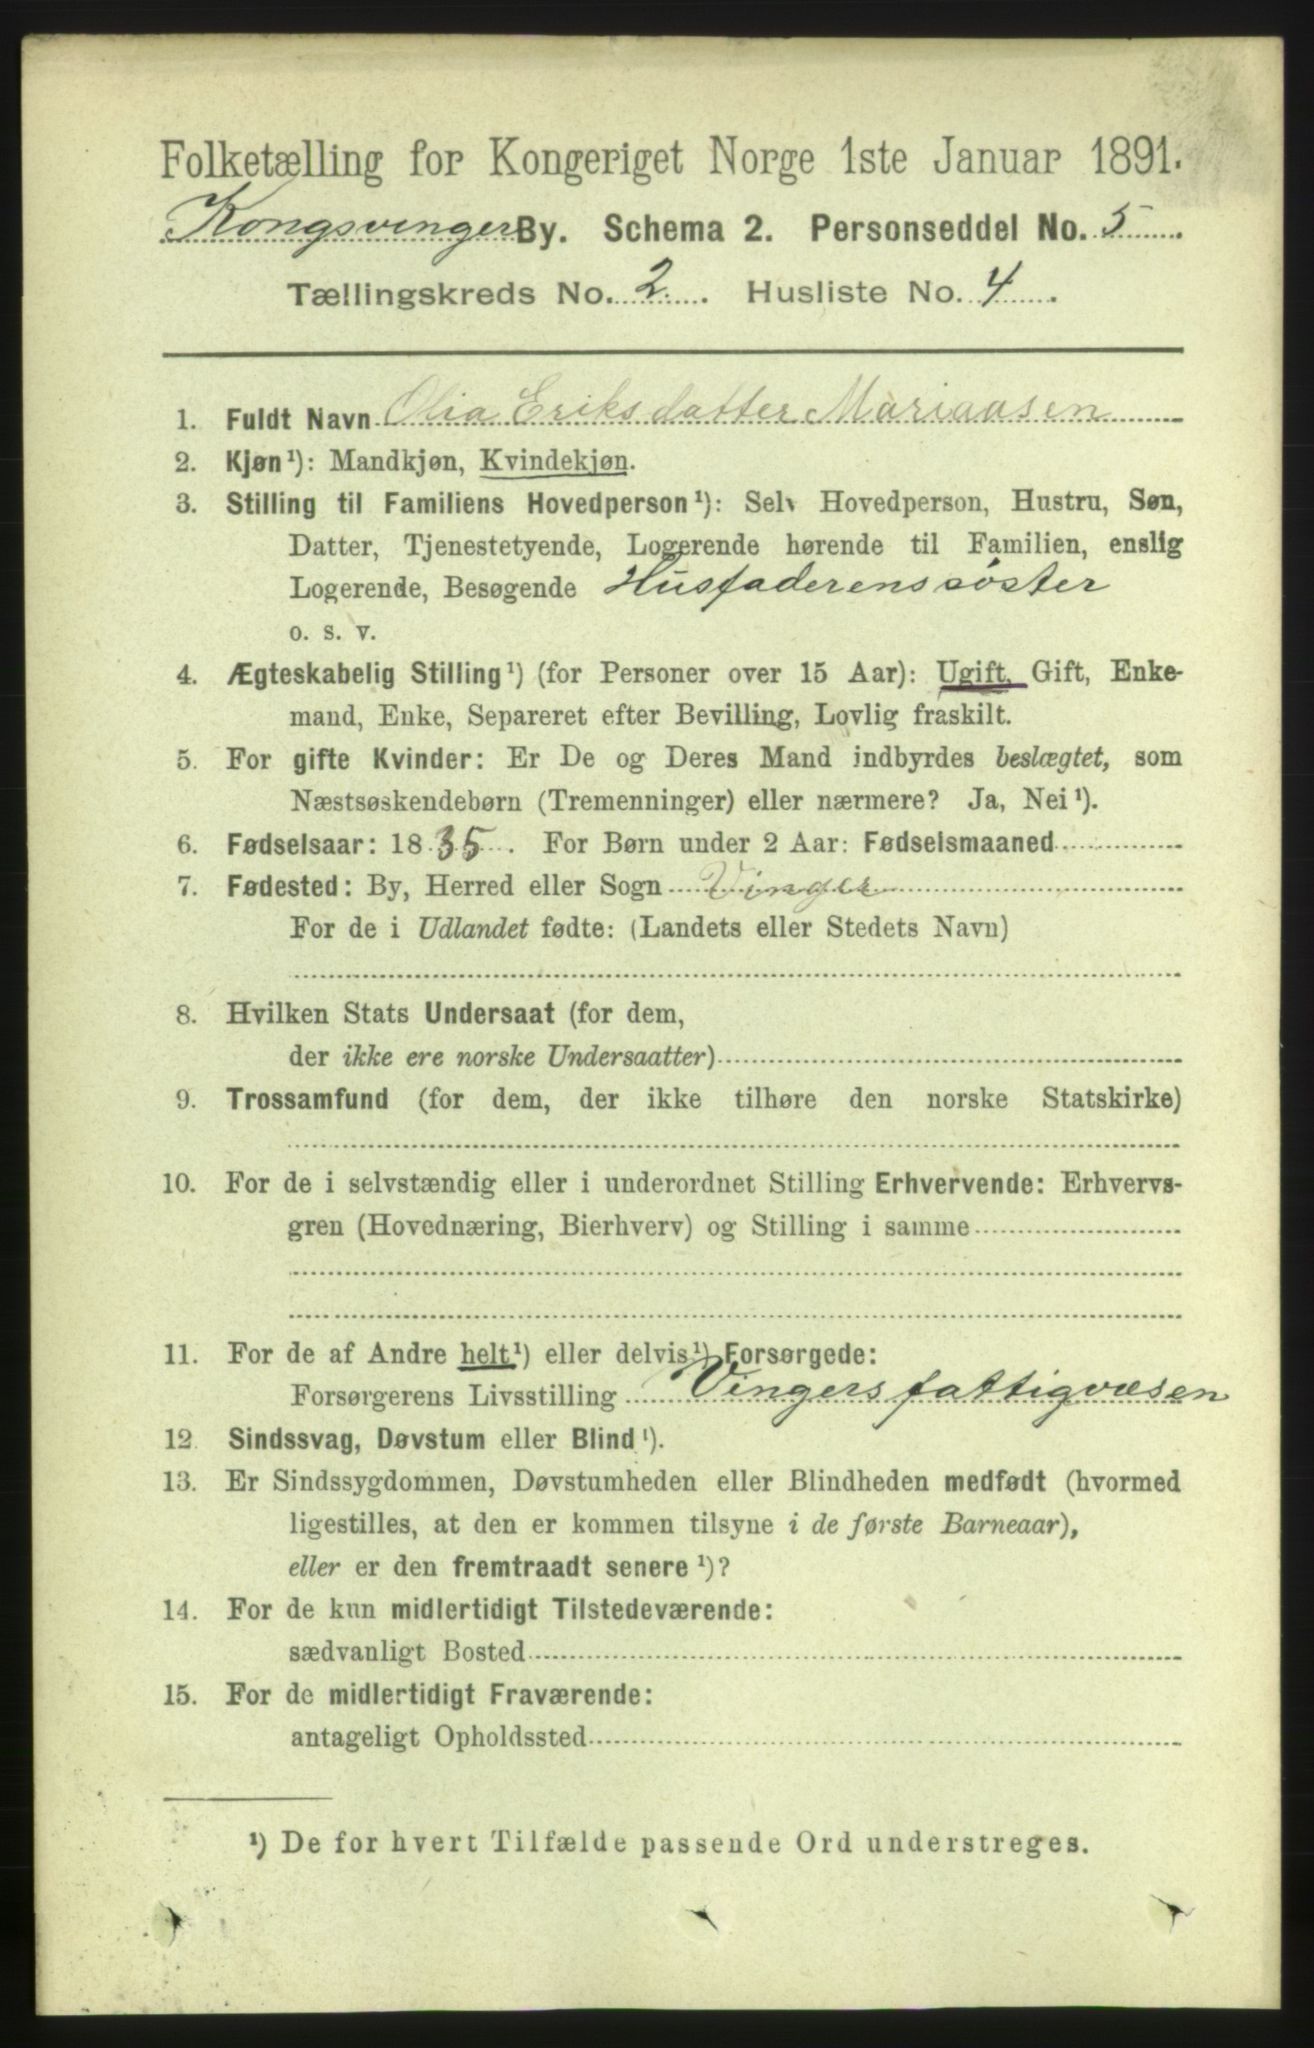 Folketælling for Kongeriget Norge 1ste Januar 1891.
Kongsvinger By. Schema 2. Personseddel No. 5
Tællingskreds No. 2. Husliste No. 4.
1. Fuldt Navn Olia Eriksdatter Mariaasen
2. Kjøn¹): Mandkjøn, Kvindekjøn.
3. Stilling til Familiens Hovedperson¹): Selv Hovedperson, Hustru, Søn,
Datter, Tjenestetyende, Logerende hørende til Familien, enslig
Logerende, Besøgende Husfaderens søster
o. s. v.
4. Ægteskabelig Stilling¹) (for Personer over 15 Aar): Ugift, Gift, Enke-
mand, Enke, Separeret efter Bevilling, Lovlig fraskilt.
5. For gifte Kvinder: Er De og Deres Mand indbyrdes beslægtet, som
Næstsøskendebørn (Tremenninger) eller nærmere? Ja, Nei¹).
6. Fødselsaar: 1835. For Børn under 2 Aar: Fødselsmaaned
7. Fødested: By, Herred eller Sogn Vinger
For de i Udlandet fødte: (Landets eller Stedets Navn)
8. Hvilken Stats Undersaat (for dem,
der ikke ere norske Undersaatter)
9. Trossamfund (for dem, der ikke tilhøre den norske Statskirke)
10. For de i selvstændig eller i underordnet Stilling Erhvervende: Erhvervs-
gren (Hovednæring, Bierhverv) og Stilling i samme
11. For de af Andre helt¹) eller delvis¹) Forsørgede:
Forsørgerens Livsstilling Vingers fattigvæsen
12. Sindssvag, Døvstum eller Blind¹).
13. Er Sindssygdommen, Døvstumheden eller Blindheden medfødt (hvormed
ligestilles, at den er kommen tilsyne i de første Barneaar),
eller er den fremtraadt senere¹)?
14. For de kun midlertidigt Tilstedeværende:
sædvanligt Bosted
15. For de midlertidigt Fraværende:
antageligt Opholdssted
¹) De for hvert Tilfælde passende Ord understreges.